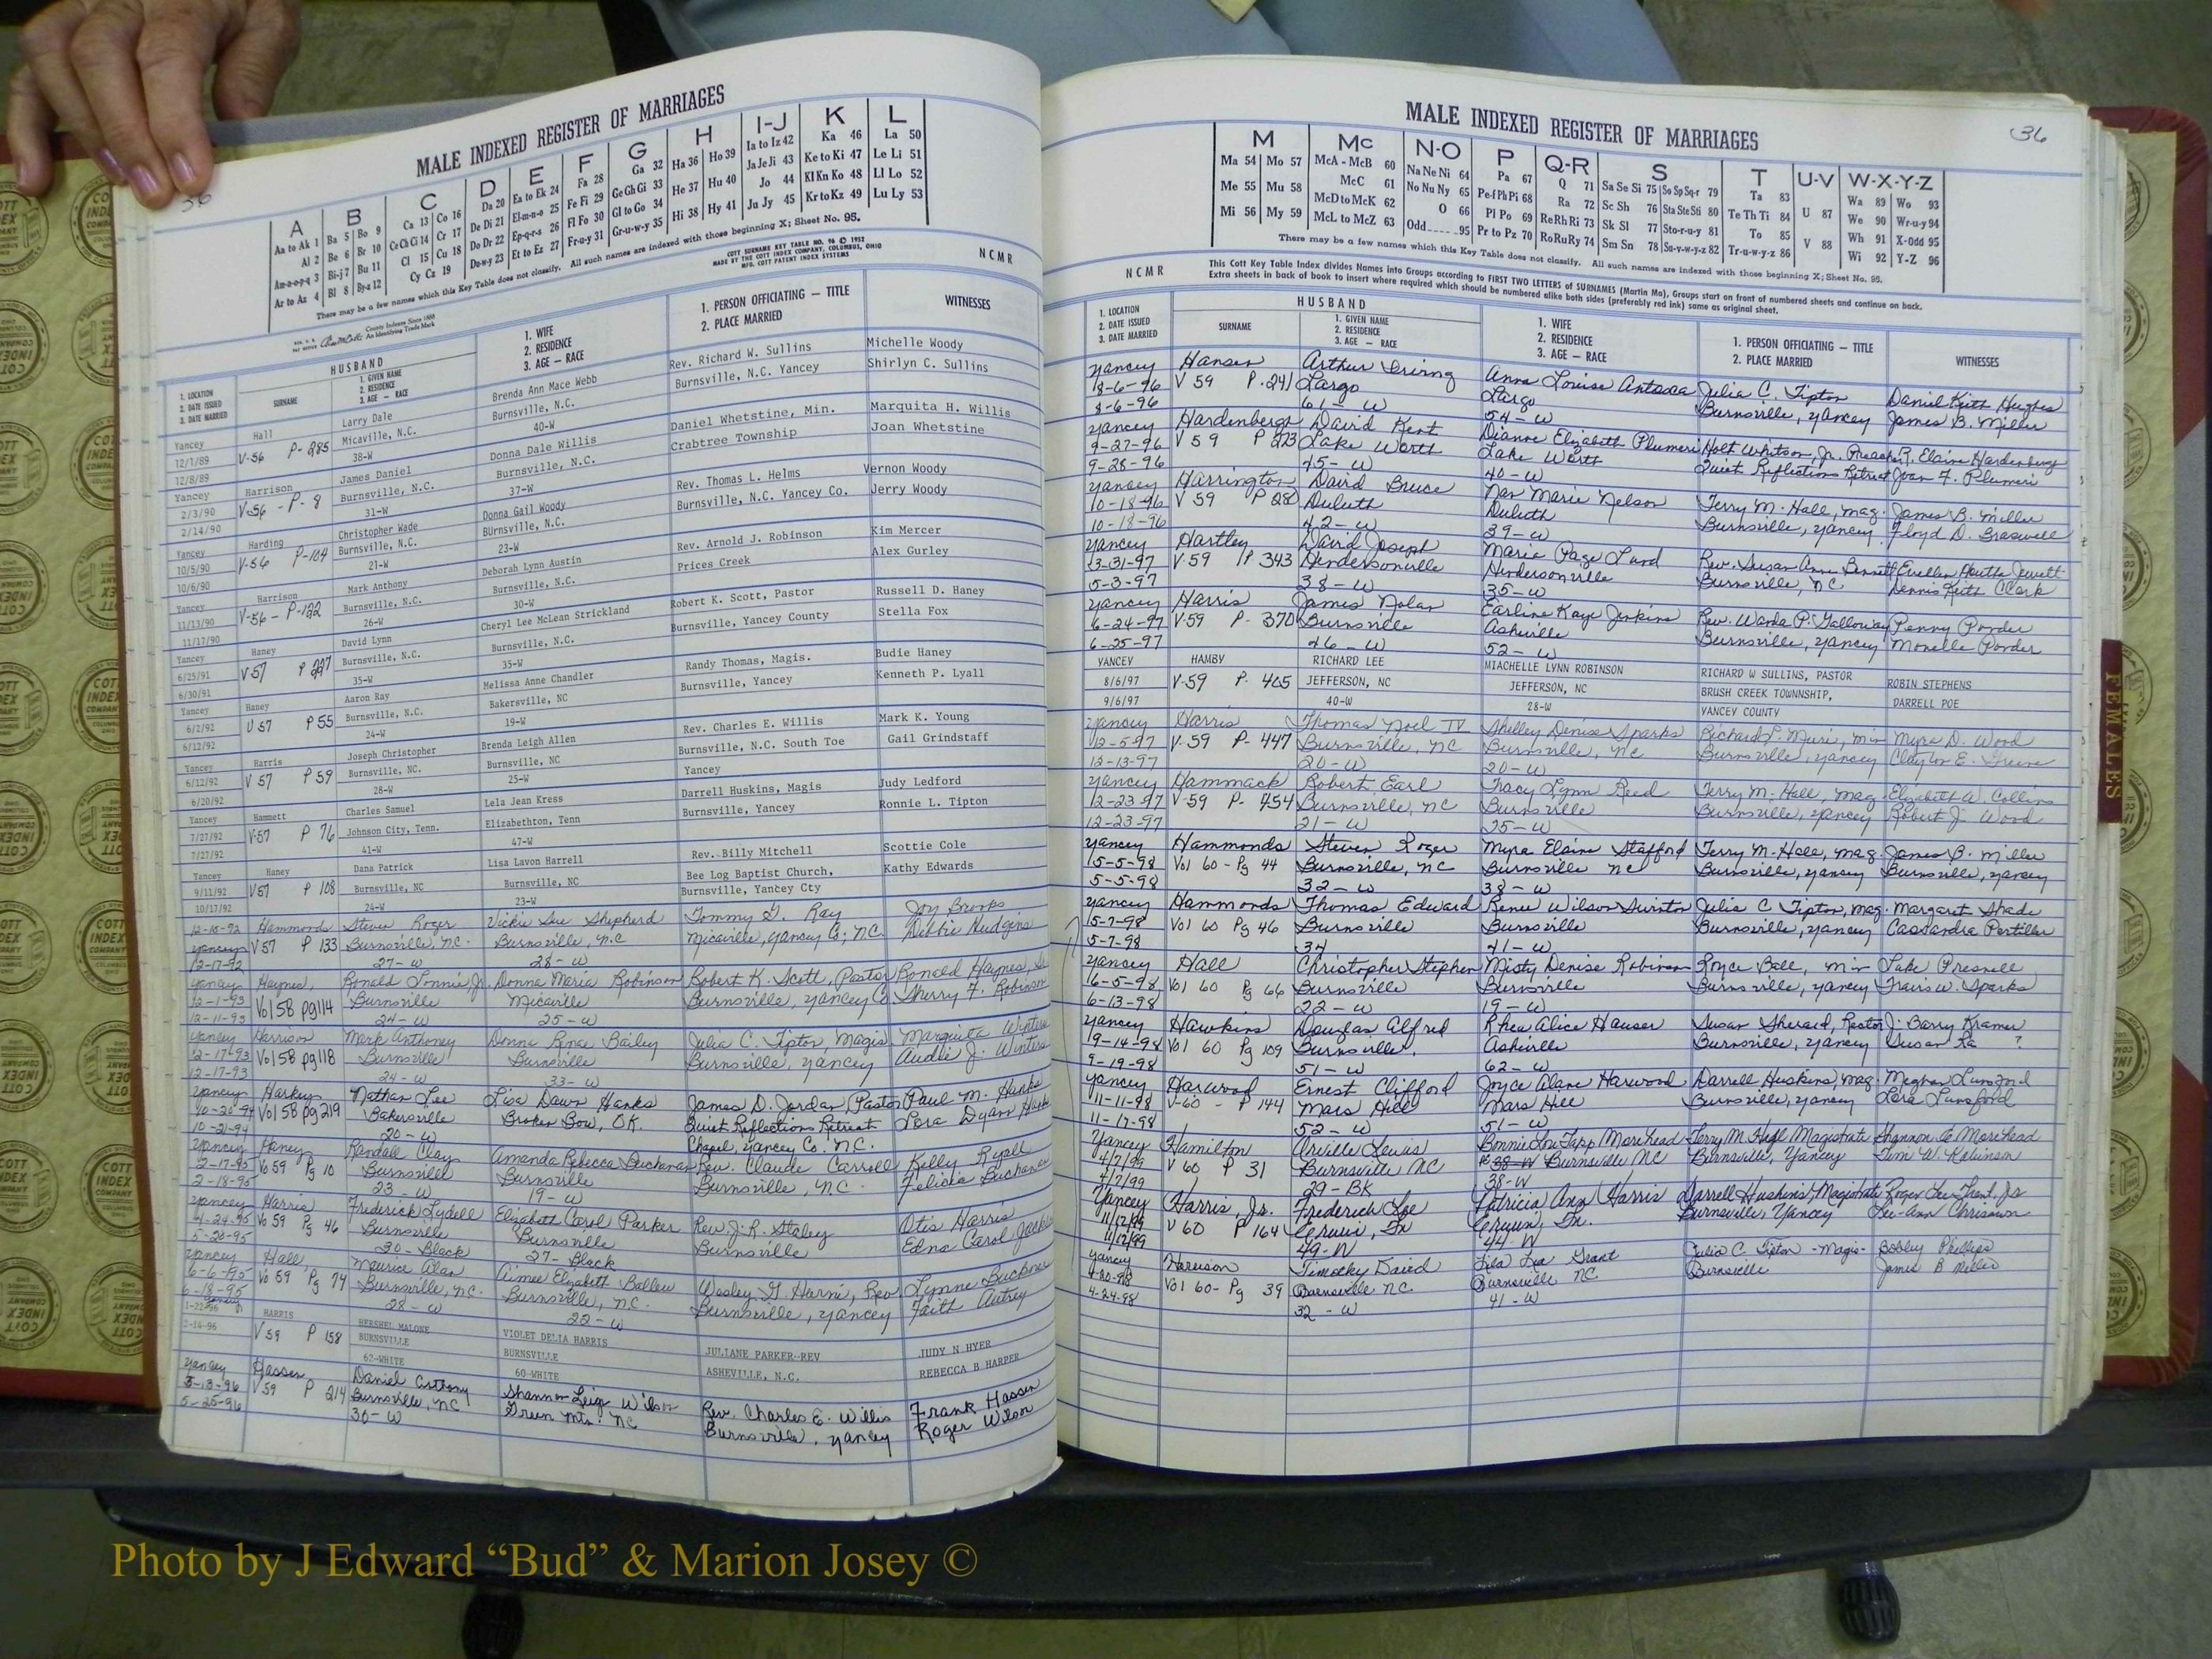 36
MALE INDEXED REGISTER OF MARRIAGES
A B C D E F G H I-J K L
Aa to Ak 1 Ba 5 Bo 9 Ca 13 Co 16 Da 20 Ea to Ek 24 Fa 28 Ga 32 Ha 36 Ho 39 Ia to Iz 42 Ka 46 La 50
Al 2 Be 6 Br 10 Ce Ch Ci 14 Cr 17 De Di 21 El-m-n-o 25 Fe Fi 29 Ge Gh Gi 33 He 37 Hu 40 Ja Je Ji 43 Ke to Ki 47 Le Li 51
Am-n-o-p-q 3 Bi-j 7 Bu 11 Cl 15 Cu 18 Do Dr 22 Ep-q-r-s 26 Fl Fo 30 Gl to Go 34 Hi 38 Hy 41 Jo 44 Kl Kn Ko 48 Ll Lo 52
Ar to Az 4 Bl 8 By-z 12 Cy Cz 19 Du-w-y 23 Et to Ez 27 Fr-u-y 31 Gr-u-w-y 35 Ju Jy 45 Kr to Kz 49 Lu Ly 53
There may be a few names which this Key Table does not classify. All such names are indexed with those beginning X; Sheet No. 95.
County Indexes Since 1888
An Identifying Trade Mark
COTT SURNAME KEY TABLE NO. 96 © 1952
MADE BY THE COTT INDEX COMPANY, COLUMBUS, OHIO
MFG. COTT PATENT INDEX SYSTEMS
NCMR
1. LOCATION
2. DATE ISSUED
3. DATE MARRIED
HUSBAND
SURNAME
1. GIVEN NAME
2. RESIDENCE
3. AGE — RACE
1. WIFE
2. RESIDENCE
3. AGE — RACE
1. PERSON OFFICIATING — TITLE
2. PLACE MARRIED
WITNESSES
Yancey Hall Larry Dale Brenda Ann Mace Webb Rev. Richard W. Sullins Michelle Woody
12/1/89 V-56 P-285 Micaville, N.C. Burnsville, N.C. Burnsville, N.C. Yancey Shirlyn C. Sullins
12/8/89 38-W 40-W
Yancey Harrison James Daniel Donna Dale Willis Daniel Whetstine, Min. Marquita H. Willis
2/3/90 V-56 - P-8 Burnsville, N.C. Burnsville, N.C. Crabtree Township Joan Whetstine
2/14/90 31-W 37-W
Yancey Harding Christopher Wade Donna Gail Woody Rev. Thomas L. Helms Vernon Woody
10/5/90 V-56 P-104 Burnsville, N.C. BUrnsville, N.C. Burnsville, N.C. Yancey Co. Jerry Woody
10/6/90 21-W 23-W
Yancey Harrison Mark Anthony Deborah Lynn Austin Rev. Arnold J. Robinson Kim Mercer
11/13/90 V-56 - P-122 Burnsville, N.C. Burnsville, N.C. Prices Creek Alex Gurley
11/17/90 26-W 30-W
Yancey Haney David Lynn Cheryl Lee McLean Strickland Robert K. Scott, Pastor Russell D. Haney
6/25/91 V57 P Burnsville, N.C. Burnsville, N.C. Burnsville, Yancey County Stella Fox
6/30/91 35-W 35-W
Yancey Haney Aaron Ray Melissa Anne Chandler Randy Thomas, Magis. Budie Haney
6/2/92 V57 P55 Burnsville, N.C. Bakersville, NC Burnsville, Yancey Kenneth P. Lyall
6/12/92 24-W 19-W
Yancey Harris Joseph Christopher Brenda Leigh Allen Rev. Charles E. Willis Mark K. Young
6/12/92 V57 P59 Burnsville, NC. Burnsville, NC Burnsville, N.C. South Toe Gail Grindstaff
6/20/92 28-W 25-W Yancey
Yancey Hammett Charles Samuel Lela Jean Kress Darrell Huskins, Magis Judy Ledford
7/27/92 V-57 P 76 Johnson City, Tenn. Elizabethton, Tenn Burnsville, Yancey Ronnie L. Tipton
7/27/92 41-W 47-W
Yancey Haney Dana Patrick Lisa Lavon Harrell Rev. Billy Mitchell Scottie Cole
9/11/92 V57 P 108 Burnsville, NC Burnsville, NC Bee Log Baptist Church, Kathy Edwards
10/17/92 24-W 23-W Burnsville, Yancey Cty
12-10-92 Hammonds Steven Roger Vickie Sue Shepherd Tommy G. Ray Joy Brooks
Yancey V57 P 133 Burnsville, N.C. Burnsville, N.C Micaville, Yancey Co; NC Debbie Hudgins
12-17-92 27-W 28-W
Yancey Haynes, Ronald Lonnie Jr. Donna Maria Robinson Robert K. Scott, Pastor Ronald Haynes, Sr
12-1-93 Vol 58 pg114 Burnsville Micaville Burnsville, Yancey Co Sherry F. Robinson
12-11-93 24-W 25-W
Yancey Harrison Mark Anthony Donna Renee Bailey Julia C. Tipton Magis Marquita Winters
12-17-93 Vol 58 pg118 Burnsville Burnsville Burnsville, Yancey Audie J. Winters
12-17-93 24-W 33-W
Yancey Harkey Nathan Lee Lisa Dawn Hanks James D. Jordan, Pastor Paul M. Hanks
10-20-94 Vol 58 pg219 Bakersville Broken Bow, OK. Quiet Reflections Retreat Lora Dyann Hanks
10-21-94 20-W Chapel, Yancey Co. N.C.
Yancey Haney Randall Clay Amanda Rebecca Buchanan Rev. Claude Carroll Kelly Ryall
2-17-95 Vo 59 Pg 10 Burnsville Burnsville Burnsville, N.C. Felicia Buchanan
2-18-95 23-W 19-W
Yancey Harris Frederick Lydell Elizabeth Carol Parker Rev J.R. Staley Otis Harris
4-24-95 Vo 59 Pg 46 Burnsville Burnsville Burnsville Edna Carol
5-20-95 30-Black 27-Black
Yancey Hall Maurice Alan Aimee Elizabeth Ballew Wesley G. Harni, Rev Lynne Buckner
6-6-95 Vo 59 Pg 74 Burnsville, N.C. Burnsville, N.C. Burnsville, Yancey Faith Autrey
6-18-95 28-W 22-W
Yancey
1-22-96 HARRIS HERSHEL MALONE VIOLET DELIA HARRIS JULIANE PARKER--REV JUDY N HYER
2-14-96 V59 P 158 BURNSVILLE BURNSVILLE ASHEVILLE, N.C. REBECCA B HARPER
62-WHITE 60-WHITE
Yancey Hassen Daniel Anthony Shannon Leigh Wilson Rev. Charles E. Willis Frank Hassen
5-13-96 V59 P 214 Burnsville, NC Green Mtn. NC Burnsville, Yancey Roger Wilson
5-25-96 30-W
36
MALE INDEXED REGISTER OF MARRIAGES
M Mc N-O P Q-R S T U-V W-X-Y-Z
Ma 54 Mo 57 McA - McB 60 Na Ne Ni 64 Pa 67 Q 71 Sa Se Si 75 So Sp Sq-r 79 Ta 83 Wa 89 Wo 93
Me 55 Mu 58 McC 61 No Nu Ny 65 Pe-f Ph Pi 68 Ra 72 Sc Sh 76 Sta Ste Sti 80 Te Th Ti 84 U 87 We 90 Wr-u-y 94
Mi 56 My 59 McD to McK 62 O 66 Pl Po 69 Re Rh Ri 73 Sk Sl 77 Sto-r-u-y 81 To 85 Wh 91 X-Odd 95
McL to McZ 63 Odd 95 Pr to Pz 70 Ro Ru Ry 74 Sm Sn 78 Su-v-w-y-z 82 Tr-u-w-y-z 86 V 88 Wi 92 Y-Z 96
There may be a few names which this Key Table does not classify. All such names are indexed with those beginning X; Sheet No. 95.
NCMR
This Cott Key Table Index divides Names into Groups according to FIRST TWO LETTERS of SURNAMES (Martin Ma), Groups start on front of numbered sheets and continue on back.
Extra sheets in back of book to insert where required which should be numbered alike both sides (preferably red ink) same as original sheet.
1. LOCATION
2. DATE ISSUED
3. DATE MARRIED
HUSBAND
SURNAME
1. GIVEN NAME
2. RESIDENCE
3. AGE — RACE
1. WIFE
2. RESIDENCE
3. AGE — RACE
1. PERSON OFFICIATING — TITLE
2. PLACE MARRIED
WITNESSES
Yancey Hansen Arthur Irving Anna Louise Julia C. Tipton Daniel Keith Hughes
8-6-96 V 59 P-241 Largo Largo Burnsville, Yancey James B. Miller
8-6-96 61-W 54-W
Yancey Hardenbergh David Kent Dianne Elizabeth Plumeri Holt Whitson, Jr. Preacher R. Elaine Hardenbergh
9-27-96 V 59 P 273 Lake Worth Lake Worth Quiet Reflections Retreat Joan F. Plumeri
9-28-96 45-W 40-W
Yancey Harrington David Bruce Nan Marie Nelson Terry M. Hall, Mag. James B. Miller
10-18-96 V 59 P 280 Duluth Duluth Burnsville, Yancey Floyd D. Braswell
10-18-96 42-W 39-W
Yancey Hartley David Joseph Maria Page Lund Rev. Susan Ann Bennett
3-31-97 V-59 P 343 Hendersonville Hendersonville Burnsville, NC Dennis Keith Clark
5-3-97 38-W 35-W
Yancey Harris James Nolan Earline Kaye Jenkins Rev. Warda P. Galloway Penny Ponder
6-24-97 V-59 P- 370 Burnsville Asheville Burnsville, Yancey Monelle Ponder
6-25-97 46-W 52-W
YANCEY HAMBY RICHARD LEE MIACHELLE LYNN ROBINSON RICHARD W SULLINS, PASTOR ROBIN STEPHENS
8/6/97 V-59 P. 405 JEFFERSON, NC JEFFERSON, NC BRUSH CREEK TOWNNSHIP, DARRELL POE
9/6/97 40-W 28-W YANCEY COUNTY
Yancey Harris Thomas Noel IV Shelley Denise Sparks Richard L. Muri, Min Myra D. Wood
12-5-97 V-59 P- 447 Burnsville, NC Burnsville, NC Burnsville, Yancey Clayton E. Greene
12-13-97 20-W 20-W
Yancey Hammack Robert Earl Tracy Lynn Reed Terry M. Hall, Mag. Elizabeth W. Collins
12-23-97 V-59 P- 454 Burnsville, NC Burnsville Burnsville, Yancey Robert J. Wood
12-23-97 21-W 25-W
Yancey Hammonds Steven Roger Myra Elaine Stafford Terry M. Hall, Mag. James B. Miller
5-5-98 Vol 60 - Pg 44 Burnsville, NC Burnsville NC Burnsville, Yancey Burnsville, Yancey
5-5-98 32-W 38-W
Yancey Hammonds Thomas Edward Renee Wilson Swinton Julia C Tipton, Mag. Margaret Shade
5-7-98 Vol 60 Pg 46 Burnsville Burnsville Burnsville, Yancey Cassandra Pertiller
5-7-98 34 41-W
Yancey Hall Christopher Stephen Misty Denise Robinson Royce Ball, Min Luke Presnell
6-5-98 Vol 60 Pg 66 Burnsville Burnsville Burnsville, Yancey Travis W. Sparks
6-13-98 22-W 19-W
Yancey Hawkins Douglas Alfred Rhea Alice Hauser Susan Sherard, Rector J. Barry Kramer
9-14-98 Vol 60 Pg 109 Burnsville, Asheville Burnsville, Yancey Susan Ra ?
9-19-98 51-W 62-W
Yancey Harwood Ernest Clifford Joyce Alane Harwood Darrell Huskins, Mag. Meghan Lunsford
11-11-98 V-60 - P 144 Mars Hill Mars Hill Burnsville, Yancey Lora Lunsford
11-17-98 52-W 51-W
Yancey Hamilton Orville Lewis Bonnie Lou Tapp Morehead Terry M Hall Magistrate Shannon C Morehead
4/7/99 V 60 P 31 Burnsville NC 38-W Burnsville NC Burnsville, Yancey Tim W. Robinson
4/7/99 29-BK 38-W
Yancey Harris, Jr. Frederick Lee Patricia Ann Harris Darrell Huskins Magistrate Roger Lee Trent, Jr
11/12/99 V 60 P 164 Erwin, Tn Erwin, Tn. Burnsville, Yancey Lee-Ann Chrisawn
11/12/99 49-W 44-W
Yancey Harrison Timothy David Lila Lea Grant Julia C. Tipton -Magis- Bobby Phillips
4-20-98 Vol 60- Pg 39 Burnsville NC. Burnsville NC Burnsville James B Miller
4-24-98 32-W 41-W
FEMALES
COTT INDEX COMPANY
Photo by J Edward “Bud” & Marion Josey ©